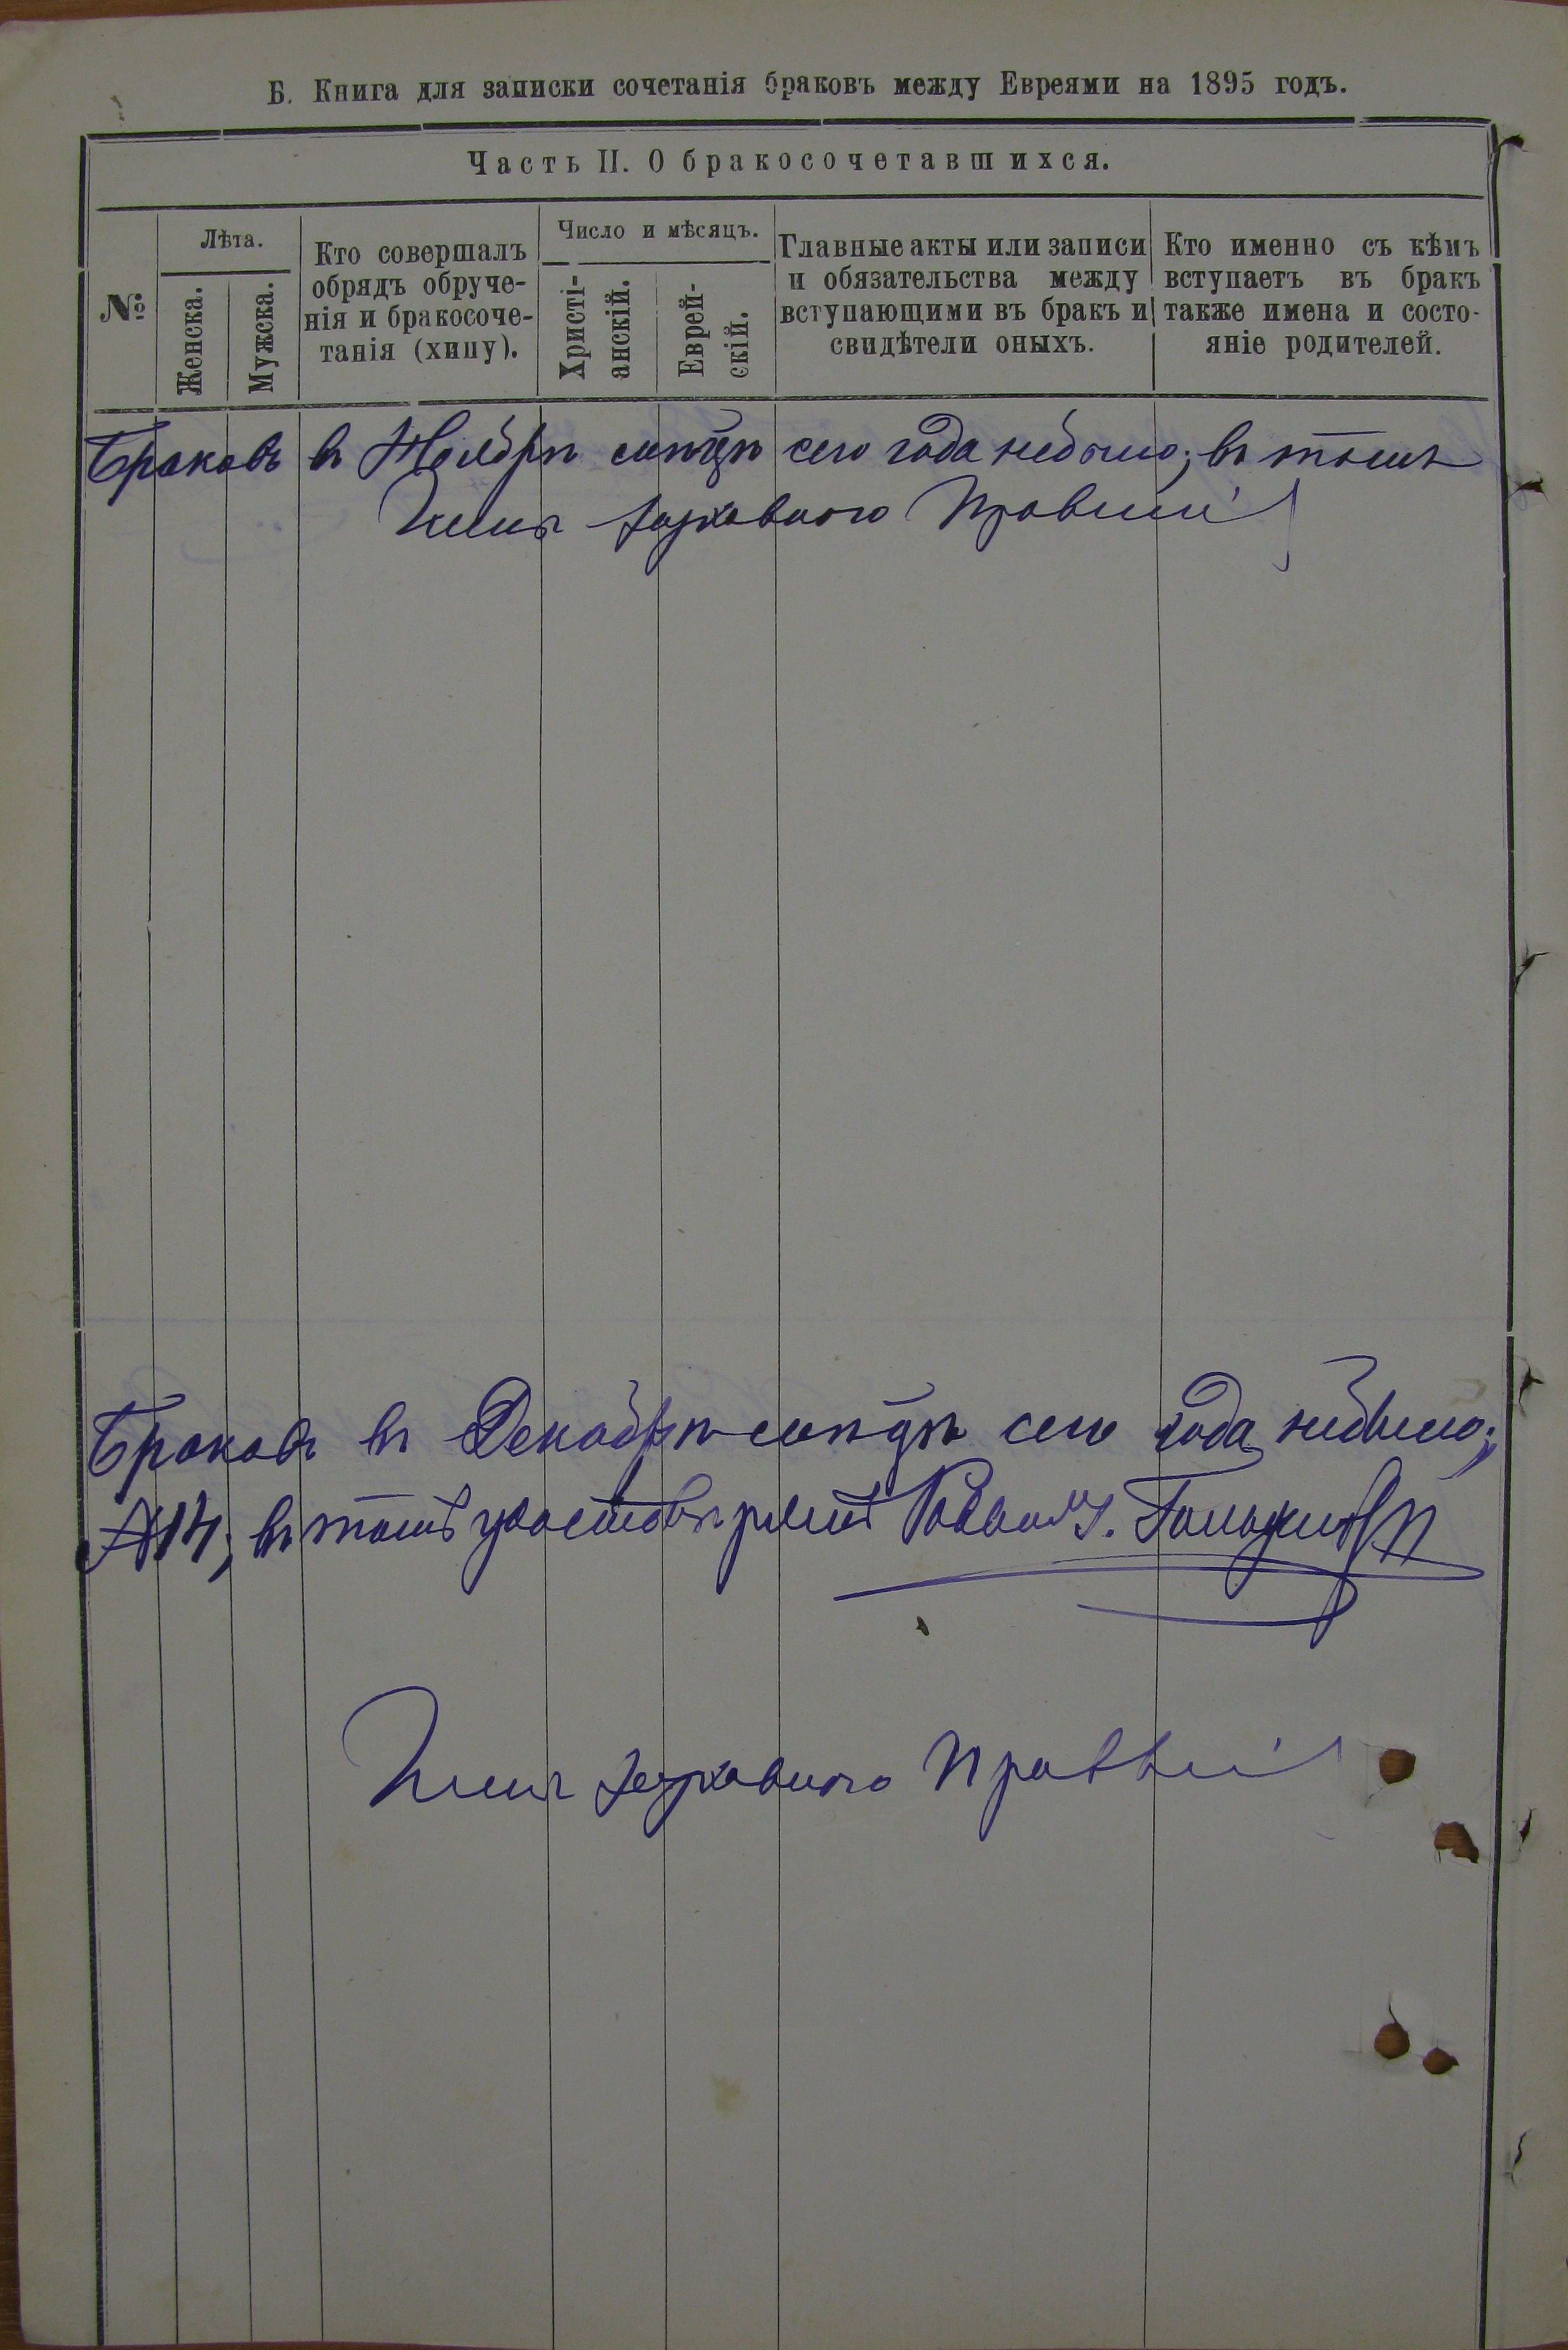 Б. Книга для записки сочетанія браковъ между Евреями на 1895 годъ.
Часть II. О бракосочетавшихся.
№
Лѣта.
Женска.
Мужска.
Кто совершалъ
обрядъ обруче-
нія и бракосоче-
танія (хипу).
Число и мѣсяцъ.
Христі-
анскій.
Еврей-
скій.
Главные акты или записи
и обязательства между
вступающими въ бракъ и
свидѣтели оныхъ.
Кто именно съ кѣмъ
вступаетъ въ бракъ
также имена и состо-
яніе родителей.
Браковъ въ Ноябрѣ мѣсяцѣ сего года небыло; въ томъ
Членъ Духовнаго Правленія
Браковъ въ Декабрѣ мѣсяцѣ сего года небыло;
въ томъ удостовѣряетъ Раввинъ
Членъ Духовнаго Правленія